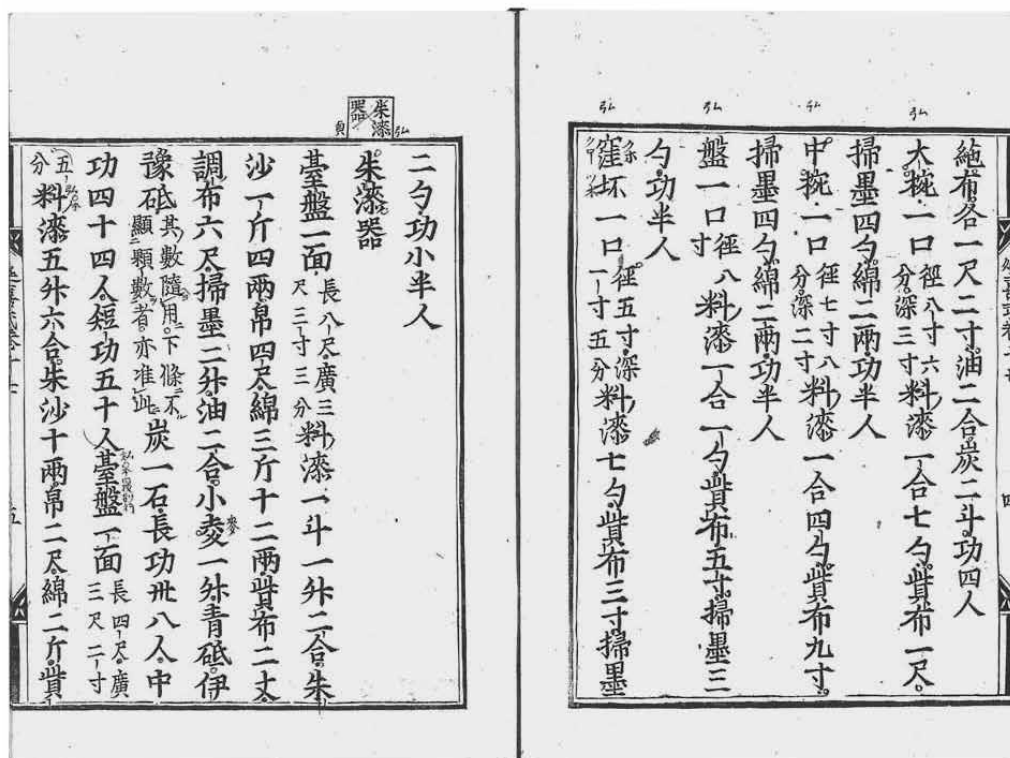 絁布各一尺二寸油二合炭二斗功四人
大椀一口徑八寸六分深三寸料漆一合七勺貲布一尺
掃墨四勺綿二兩功半人
中椀一口徑七寸八分深二寸料漆一合四勺貲布九寸
掃墨四勺綿二兩功半人
盤一口徑八寸料漆一合一勺貲布五寸掃墨三
勺功半人
窪坏一口徑五寸深一寸五分料漆七勺貲布三寸掃墨
二勺功小半人
朱漆器
朱漆器
臺盤一面長八尺廣三尺三寸三分料漆一斗一升二合朱
沙一斤四兩帛四尺綿三斤十二兩貲布二丈
調布六尺掃墨二升油二合小麦一升青砥伊
豫砥其數隨用下條不顯顆數者亦准此炭一石長功卅八人中
功四十四人短功五十人臺盤一面長四尺廣三尺二寸
五分料漆五升六合朱沙十兩帛二尺綿二斤貲